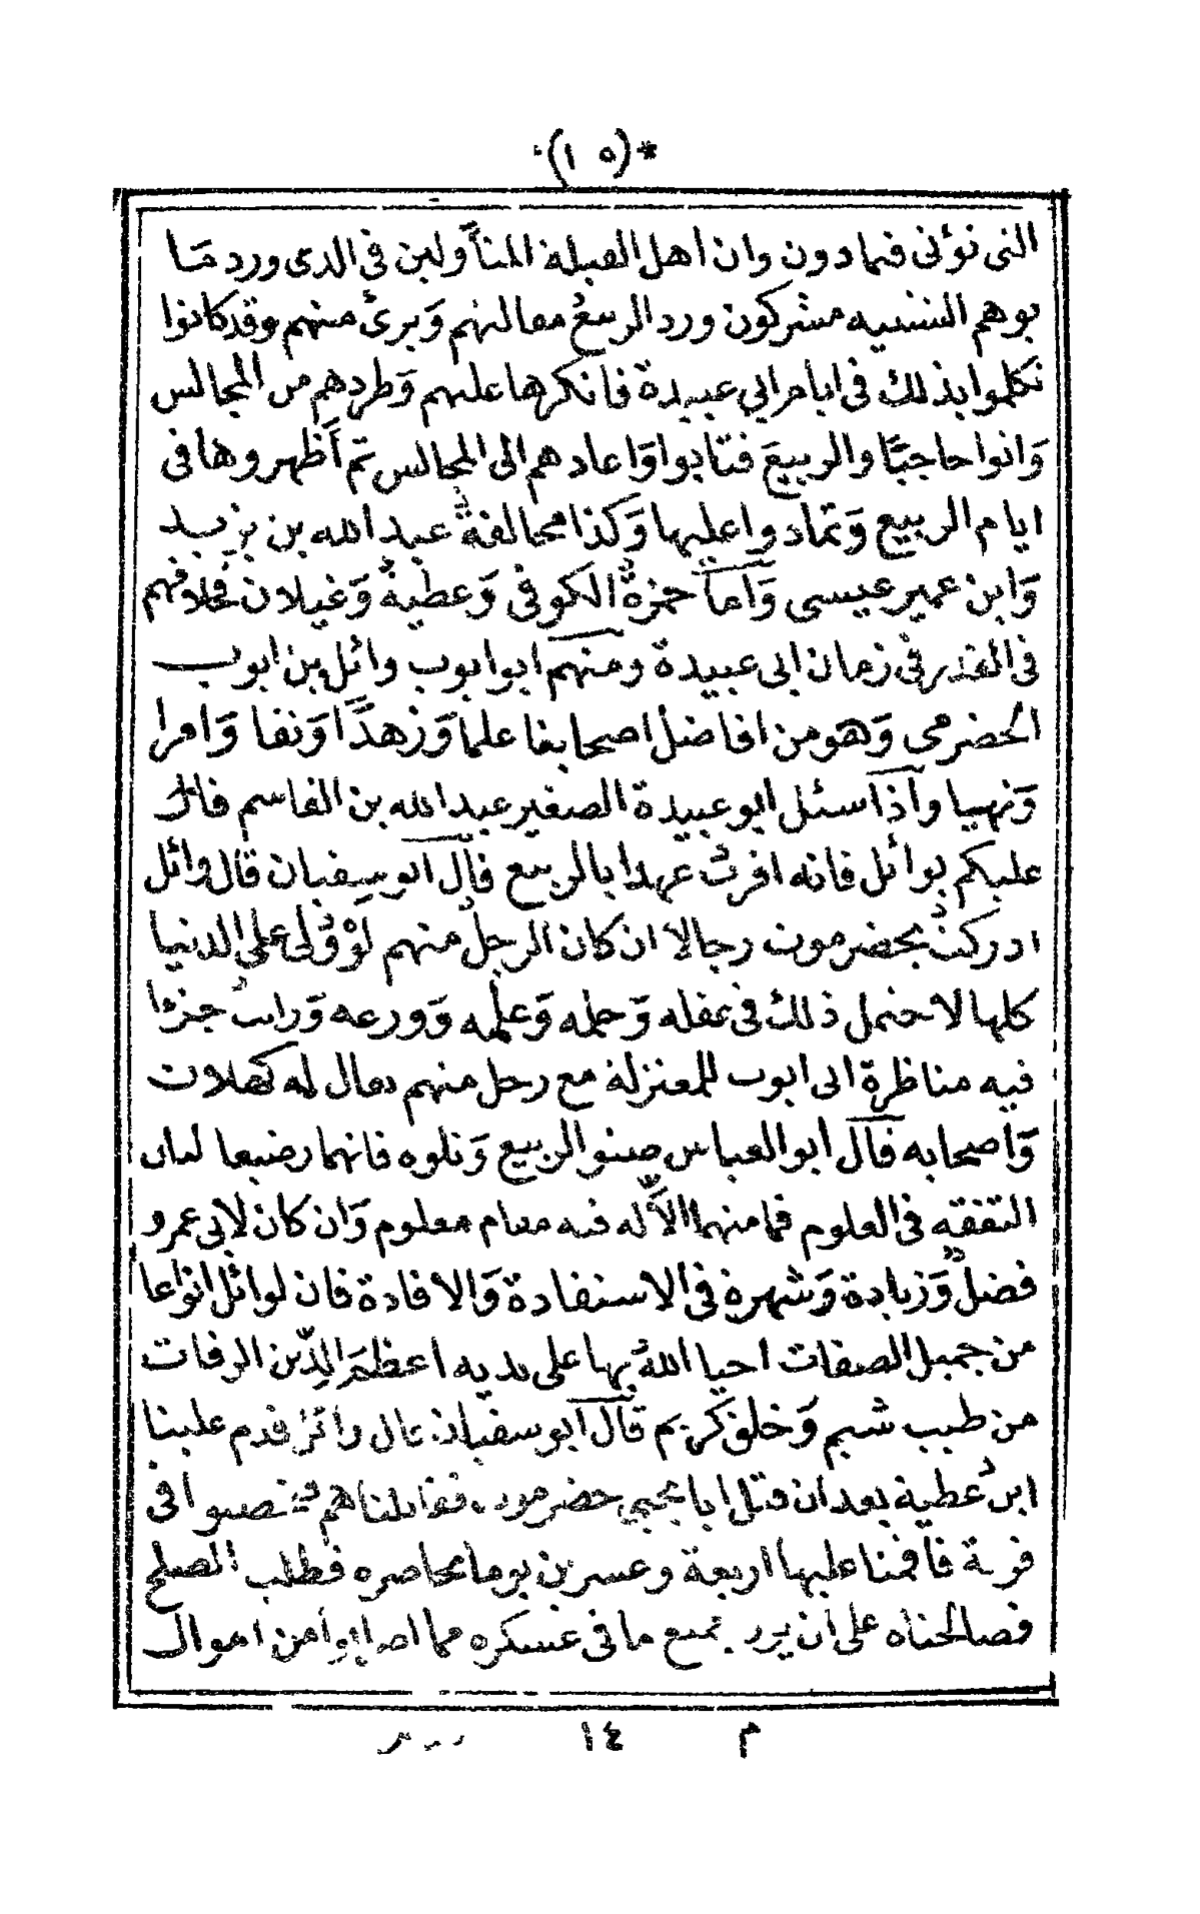 *(١٠٥)*
التى تؤتى فيما دون وان اهل القبلة المتأولين فى الذى ورد مما
يوهم التشبيه مشركون ورد الربيع مقالتهم وَبرئ منهم وقد كانوا
تكلموا بذلك فى ايام ابي عبيدة فانكرها عليهم وَطردهم من المجالس
وَاتوا حاجبًا والربيعَ فتابوا وَاعادهم الى المجالس ثم أظهروها فى
ايام الربيع وَتمادوا عليها وَكذا مخالفةُ عبد الله بن يزيد
وَابن عمير عيسى وَآما حمزةُ الكوفى وَعطيةُ وَغيلان فخلافهم
فى القدر فى زمان ابى عبيدة ومنهم ابوايوب وائل بن ايوب
الحضرمى وَهو من افاضل اصحابنا علما وَزهدًا وَتقا وَامرا
وَنهيا وآذا سئل ابو عبيدة الصغير عبد الله بن القاسم قال
عليكم بوائل فانه اقربُ عهدا بالربيع قال ابو سفيان قال وائل
ادركتُ بحضرموت رجالا ان كان الرجلُ منهم لَوْ وُلى على الدنيا
كلها لاحتمل ذلك فى عقله وَحلمه وَعلمه وَورعه وَرايتُ جزءا
فيه مناظرة ابى ايوب للمعتزلة مع رجل منهم يقال له كهلان
وَاصحابه قال أبو العباس صنو الربيع وَتلوه فانهما رضيعا لبان
التفقه فى العلوم فما منهما الاَّ له فيه مقام معلوم وَان كان لابى عمرو
فضلٌ وَزيادة وَشهرة فى الاستفادة وَالافادة فان لوائل انواعا
من جميل الصفات احيا اللهُ بها على يديه اعظمَ الدِّين الرفات
من طيب شيم وَخلق كريم قال ابو سفيان قال وائل قدم علينا
ابنُ عطية بعد ان قتل ابا يحيى حضرموت فقاتلناهم فتحصنوا فى
قرية فاقمنا عليها اربعة وعشرين يوما نحاصره فطلب الصلح
فصالحناه على ان يرد جميع ما فى عسكره مما اصابوا من اموال
م ١٤